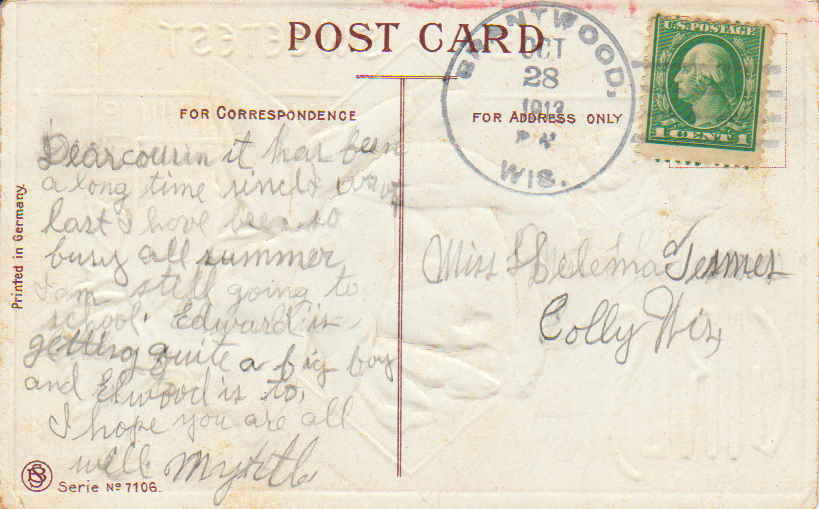 POST CARD
BRENTWOOD,
OCT
28
1913
WIS.
U.S. POSTAGE
1 CENTS 1
FOR CORRESPONDENCE
FOR ADDRESS ONLY
Dear cousin it has been
a long time since I
last I have been so
busy all summer
I am still going to
school. Edward is
getting quite a big boy
and Elwood is to.
I hope you are all
well Myrtle
Miss
Colly Wis
Printed in Germany.
Serie No 7106.